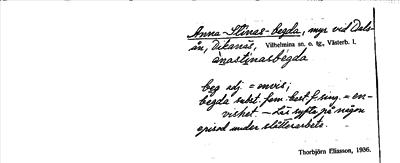 Anna-Stinas-begda, myr vid Dals-
ån, Dikanäs, Vilhelmina sn. o. tg., Västerb. l.
ànastinasbégda
beg adj. = envis;
begda subst. fem. best. f. sing. = en-
vishet – Lär syfta på någon
episod under slåtterarbete.
Thorbjörn Eliasson, 1936.